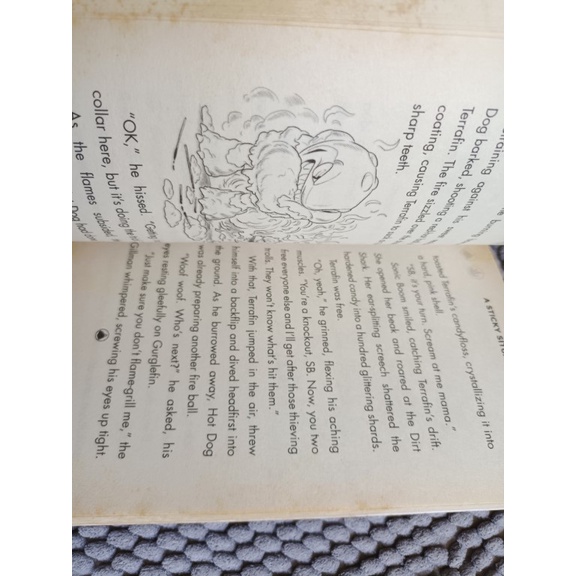 Dog barked, shooting a
Terrafin. The fire sizzled
coating, causing Terrafin to
sharp teeth.
"OK," he hissed.
collar here, but it's doing
As the flames
A STICKY
toasted Terrafin's candyfloss, crystallizing it into
a hard, pink shell.
"SB, it's your turn. Scream at me mama."
Sonic Boom smiled, catching Terrafin's drift.
She opened her beak and roared at the Dirt
Shark. Her ear-splitting screech shattered the
hardened candy into a hundred glittering shards.
Terrafin was free.
"Oh, yeah," he grinned, flexing his aching
muscles. "You're a knockout, SB. Now, you two
free everyone else and I'll get after those thieving
trolls. They won't know what's hit them."
With that, Terrafin jumped in the air, threw
himself into a backflip and dived headfirst into
the ground. As he burrowed away, Hot Dog
was already preparing another fire ball.
"Woof woof. Who's next?" he asked, his
eyes resting gleefully on Gurglefin.
"Just make sure you don't flame-grill me," the
Gillman whimpered, screwing his eyes up tight.